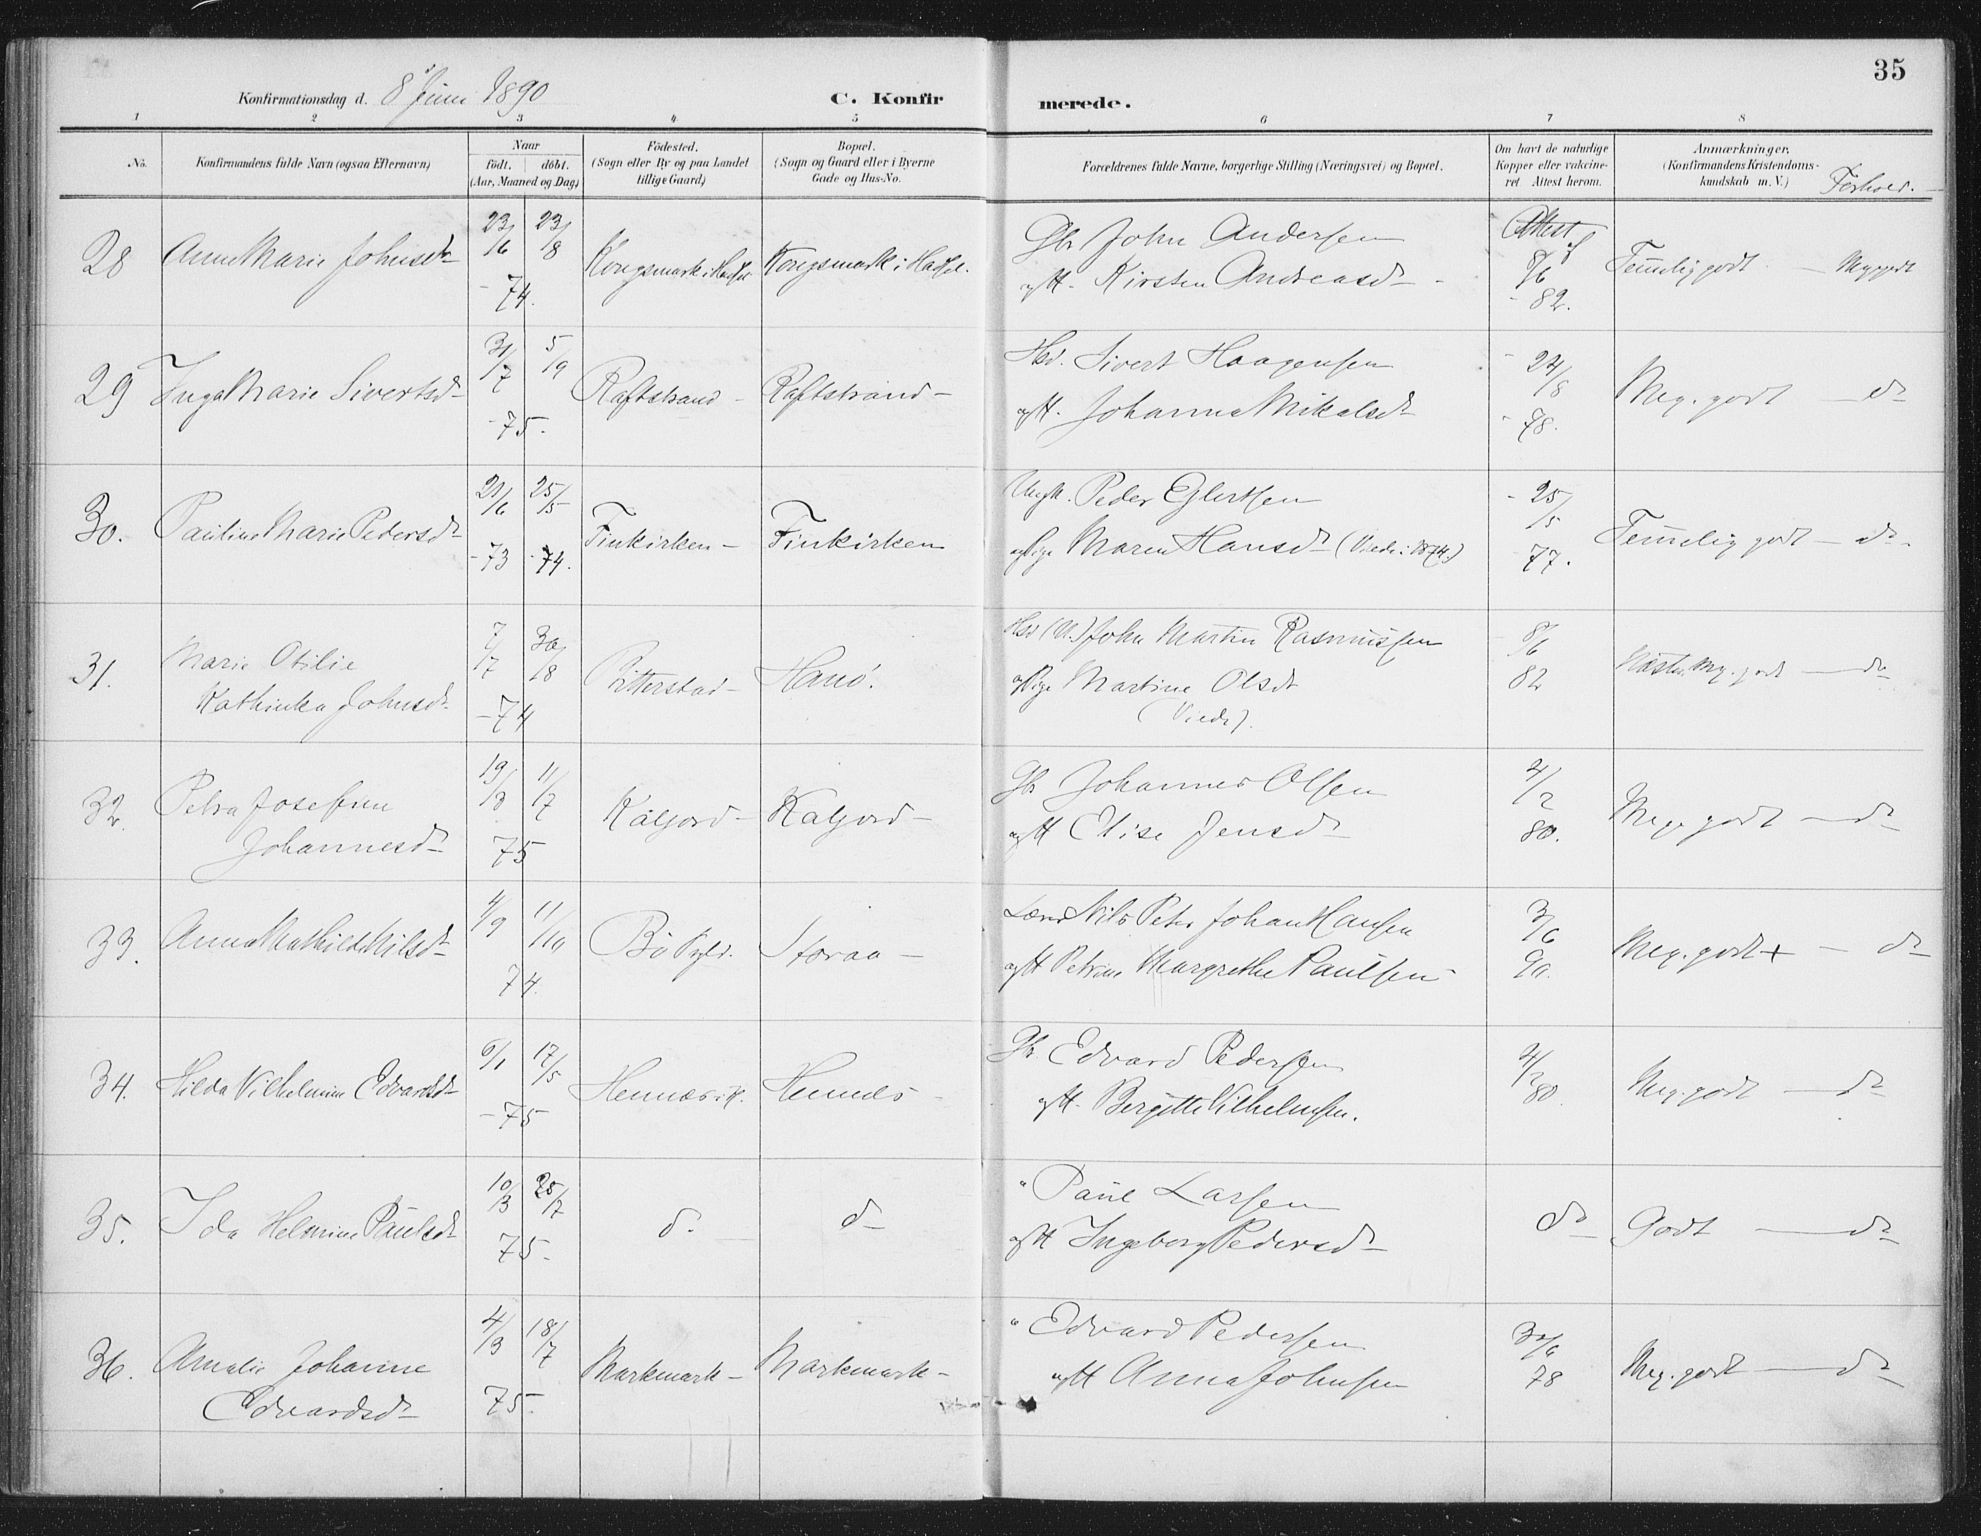 35
Konfirmationsdag d. 8 Juni 1890 C. Konfirmerede.
1 2 3 4 5 6 7 8
No. Konfirmandens fulde Navn (ogsaa Efternavn) Naar födt. döbt. (Aar, Maaned og Dag) Födested. (Sogn eller By og paa Landet tillige Gaard) Bopæl. (Sogn og Gaard eller i Byerne Gade og Hus-No. Forældrenes fulde Navne, borgerlige Stilling (Næringsvei) og Bopæl. Om havt de naturlige Kopper eller vakcineret. Attest herom. Anmærkninger. (Konfirmandens Kristendomskundskab m. V.) Forhold.
28 Anne Marie Johnsdr 23/6 23/8 -74. Kongsmark i Hadsel Kongsmark i Hadsel.
Gbr John Andersen
og H. Kirsten Andreasd
Attest af 8/6 -82. Temmelig godt. — Meg godt
29 Inga Marie Sivertsd 31/7 5/9 -75. Raftstrand Raftstrand
Hsd. Sivert Haagensen
og H. Johanna Mikalsdr
24/8 -78. Meg. godt — do
30. Pauline Marie Pedersdr 21/6 -73 25/5 -74. Finkirken Finkirken
Ungk. Peder Glertsen
og Pige Maren Hansdr (Viede i 1874)
25/5 77. Temmelig godt — do
31. Marie Otilie
Kathinka Johnsdr 7/7 30/8 -74 Pitterstad Hanö.
Hsd (U.) John Martin Rasmussen
og Pige Martine Olsdr
(Viede).
8/6 82 Næsten Meg. godt — do
32. Petra Josefine
Johannesdr 19/3 11/7 75 Kaljord Kaljord
Gbr Johannes Olsen
og H Elise Jensdr
4/2 80. Meg. godt — do
33. Anna Mathilde Nilsdr 4/9 11/10 74. Bö Storaa
Nils Peter Johan Hansen
og H Petrine Margrethe Paulsen
3/6 90. Meg. godt + — do
34. Hilda Vilhelmine Edvardsdr 6/1 17/5 -75 Hennæs i H. Hennæs
Gbr. Edvard Pedersen
og H. Bergitte Vilhelmsen.
4/2 80. Meg. godt — do
35. Ida Helmine Paulsdr 10/3 25/7 75. do do
" Paul Larsen
og H Ingeborg Pedersdr
do Godt — do
36. Amalie Johanne
Edvardsdr 4/3 18/7 75. Markmark Markmark
" Edvard Pedersen
og H Anna Johnsen
30/6 78 Meg. godt — do